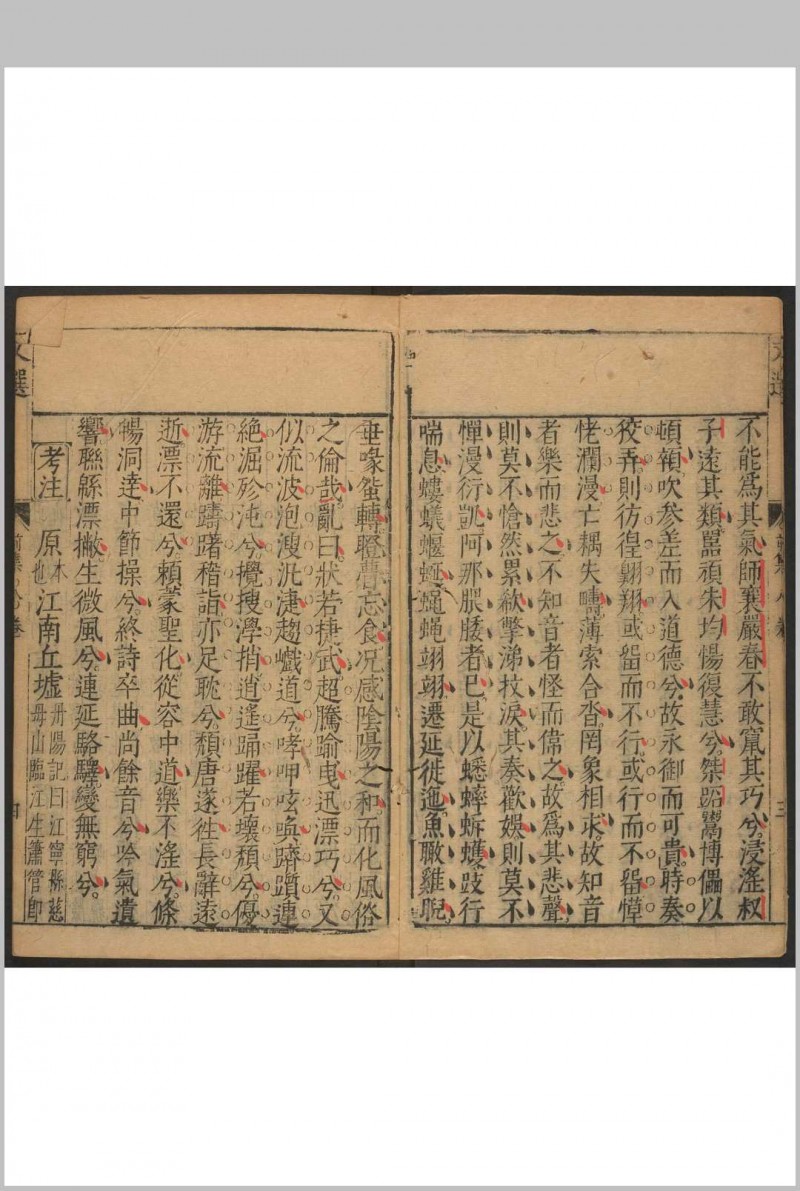 文選
不能爲其氣師襄嚴春不敢竄其巧兮浸滛叔
子逺其類嚚頑朱均惕復慧兮桀跖鬻博儡以
頓顇吹參差而入道德兮故永御而可貴時奏
狡弄則彷徨翺翔或畱而不行或行而不畱愺
恅瀾漫亡耦失疇薄索合沓罔象相求故知音
者樂而悲之不知音者怪而偉之故爲其悲聲
則莫不愴然累欷擎涕抆淚其奏歡娛則莫不
憚漫衍凱阿那腲腇者已是以蟋蟀蚸蠖蚑行
喘息螻蟻蝘蜒蠅蠅翊翊遷延徙迤魚瞰雞睨
垂喙蜿轉瞪瞢忘食况感隂陽之和而化風俗
之倫哉亂曰狀若捷武超騰踰曳迅漂巧兮又
似流波泡溲汎㨗趨巇道兮哮呷呟喚躋躓連
絶淈殄沌兮攪搜㶅捎逍遥踊躍若壊頽兮優
游流離躊躇稽詣亦足耽兮頽唐遂徃長辭逺
逝漂不還兮頼蒙聖化從容中道樂不滛兮條
暢洞達中節操兮終詩卒曲尚餘音兮吟氣遺
響聯緜漂撇生微風兮連延駱驛變無窮兮
考注 原本也江南丘墟丹陽記曰江寧縣慈母山臨江生簫管即
文選